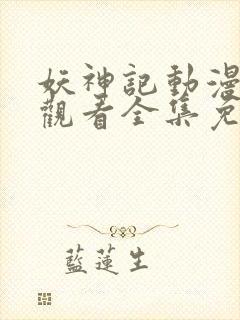 妖神記動漫
觀看全集免
藍蓮生